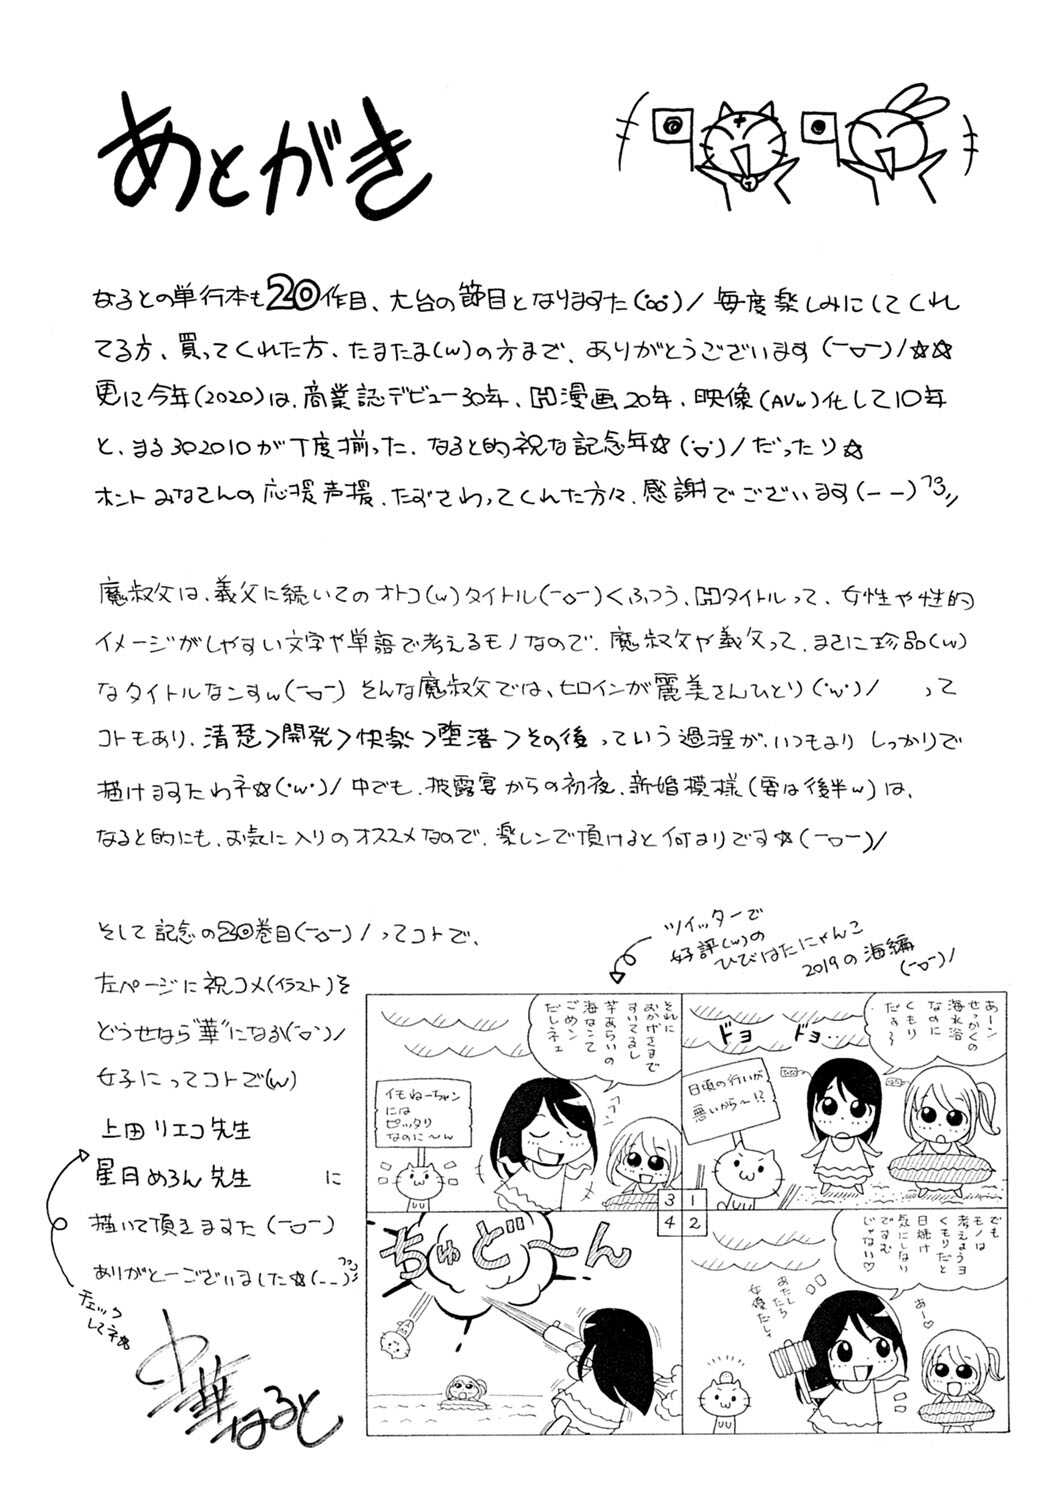 あとがき
なるとの単行本も20作目、大台の節目となりますた(°∞°)/ 毎度楽しみにしてくれ
てる方、買ってくれた方、たまたま(w)の方まで、ありがとうございます(ー▽ー)/☆☆
更に今年(2020)は、商業誌デビュー30年、H漫画20年、映像(AVw)化して10年
と、まる302010が丁度揃った、なると的祝な記念年☆(･▽･)/だったり☆
ホントみなさんの応援声援、たずさわってくれた方々、感謝でございます(ーー)フカ〃
魔叔父は、義父に続いてのオトコ(w)タイトル(ー◇ー)くふつう、Hタイトルって、女性や性的
イメージがしやすい文字や単語で考えるモノなので、魔叔父や義父って、まさに珍品(w)
なタイトルなンすw(ー▽ー) そんな魔叔父では、ヒロインが麗美さんひとり(･w･)/ って
コトもあり、清楚>開発>快楽>堕落>その後 っていう過程が、いつもより しっかりで
描けますたわネ☆(･w･)/ 中でも、披露宴からの初夜、新婚模様(要は後半w)は、
なると的にも、お気に入りのオススメなので、楽しンで頂けると何よりです☆(ー▽ー)/
そして記念の20巻目(ー◇ー)/ってコトで、
左ページに祝コメ(イラスト)を
どうせなら"華"になる(･▽･)/
女子にってコトで(w)
上田リエコ先生
星月めろん先生 に
描いて頂きますた(ー▽ー)
ありがとーございました☆(ーー)フカ〃
チェック
してネ☆
中華なると
ツイッターで
好評(w)の
ひびはたにゃんこ
2019の海編
(ー▽ー)/
あーン
せっかくの
海水浴
なのに
くもり
だす〜
ドヨ ドヨ‥
日頃の行いが
悪いから〜!?
1
でも
モノは
考えようヨ
くもりだと
日焼け
気にしない
ですむ
じゃない♡
あー♡
あたしたち
女優だし♪
2
それに
おかげさまで
すいてるし
芋あらいの
海なンて
ごめン
だしネェ
フフン
イモねーちゃン
には
ピッタリ
なのに〜ん
3
ちゅど〜ん
4